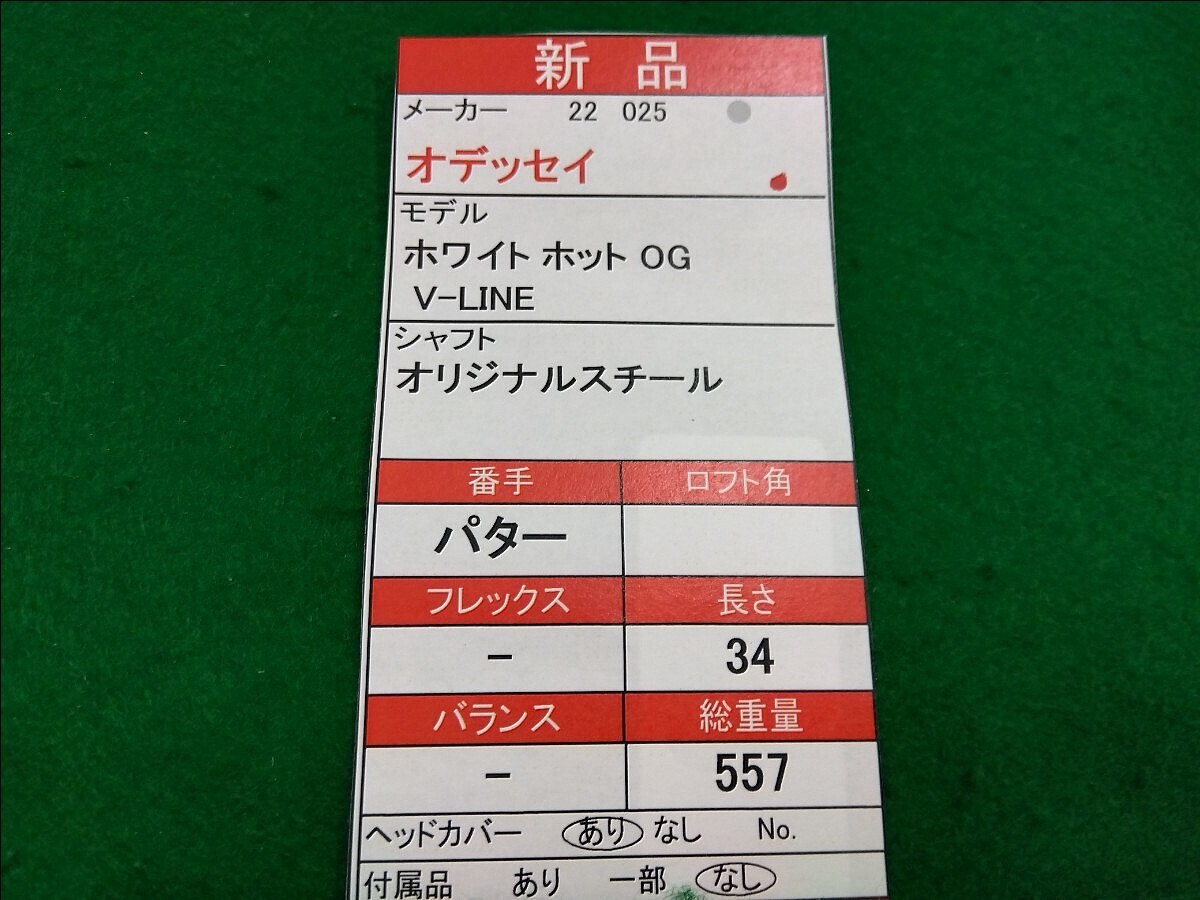 新 品
メーカー 22 025
オデッセイ
モデル
ホワイト ホット OG
V-LINE
シャフト
オリジナルスチール
番手 ロフト角
パター
フレックス 長さ
- 34
バランス 総重量
- 557
ヘッドカバー あり なし No.
付属品 あり 一部 なし